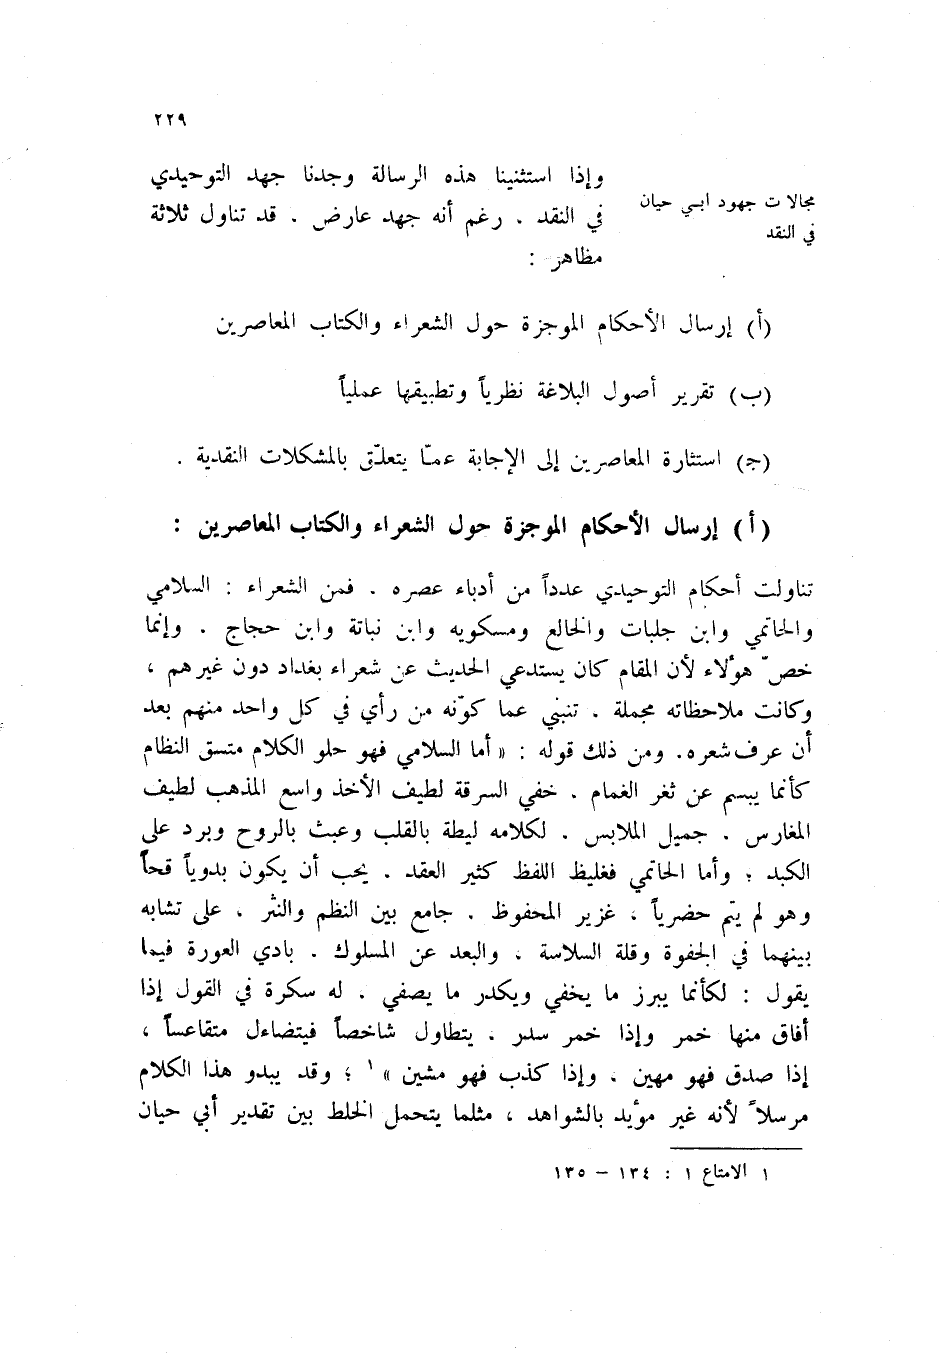 ٢٢٩
مجالات جهود ابي حيان
في النقد
وإذا استثنينا هذه الرسالة وجدنا جهد التوحيدي
في النقد ، رغم أنه جهد عارض ، قد تناول ثلاثة
مظاهر :
(أ) إرسال الأحكام الموجزة حول الشعراء والكتاب المعاصرين
(ب) تقرير أصول البلاغة نظرياً وتطبيقها عملياً
(ج) استثارة المعاصرين إلى الإجابة عمّا يتعلّق بالمشكلات النقدية .
(أ) إرسال الأحكام الموجزة حول الشعراء والكتاب المعاصرين :
تناولت أحكام التوحيدي عدداً من أدباء عصره ، فمن الشعراء : السلامي
والحاتمي وابن جلبات والخالع ومسكويه وابن نباتة وابن حجاج ، وإنما
خصّ هؤلاء لأن المقام كان يستدعي الحديث عن شعراء بغداد دون غيرهم ،
وكانت ملاحظاته مجملة ، تنبئي عما كوّنه من رأي في كل واحد منهم بعد
أن عرف شعره، ومن ذلك قوله : « أما السلامي فهو حلو الكلام متسق النظام
كأنما يبسم عن ثغر الغمام ، خفي السرقة لطيف الأخذ واسع المذهب لطيف
المغارس ، جميل الملابس ، لكلامه ليطة بالقلب وعبث بالروح وبرد على
الكبد ؛ وأما الحاتمي فغليظ اللفظ كثير العقد ، يحب أن يكون بدوياً قحاً
وهو لم يتم حضرياً ، غزير المحفوظ ، جامع بين النظم والنثر ، على تشابه
بينهما في الجفوة وقلة السلاسة ، والبعد عن المسلوك ، بادي العورة فيما
يقول : لكأنما يبرز ما يخفي ويكدر ما يصفي ، له سكرة في القول إذا
أفاق منها خمر وإذا خمر سدر ، يتطاول شاخصاً فيتضاءل متقاعساً ،
إذا صدق فهو مهين ، وإذا كذب فهو مشين » ١ ؛ وقد يبدو هذا الكلام
مرسلاً لأنه غير مؤيد بالشواهد ، مثلما يتحمل الخلط بين تقدير أبي حيان
١ الامتاع ١ : ١٣٤ – ١٣٥